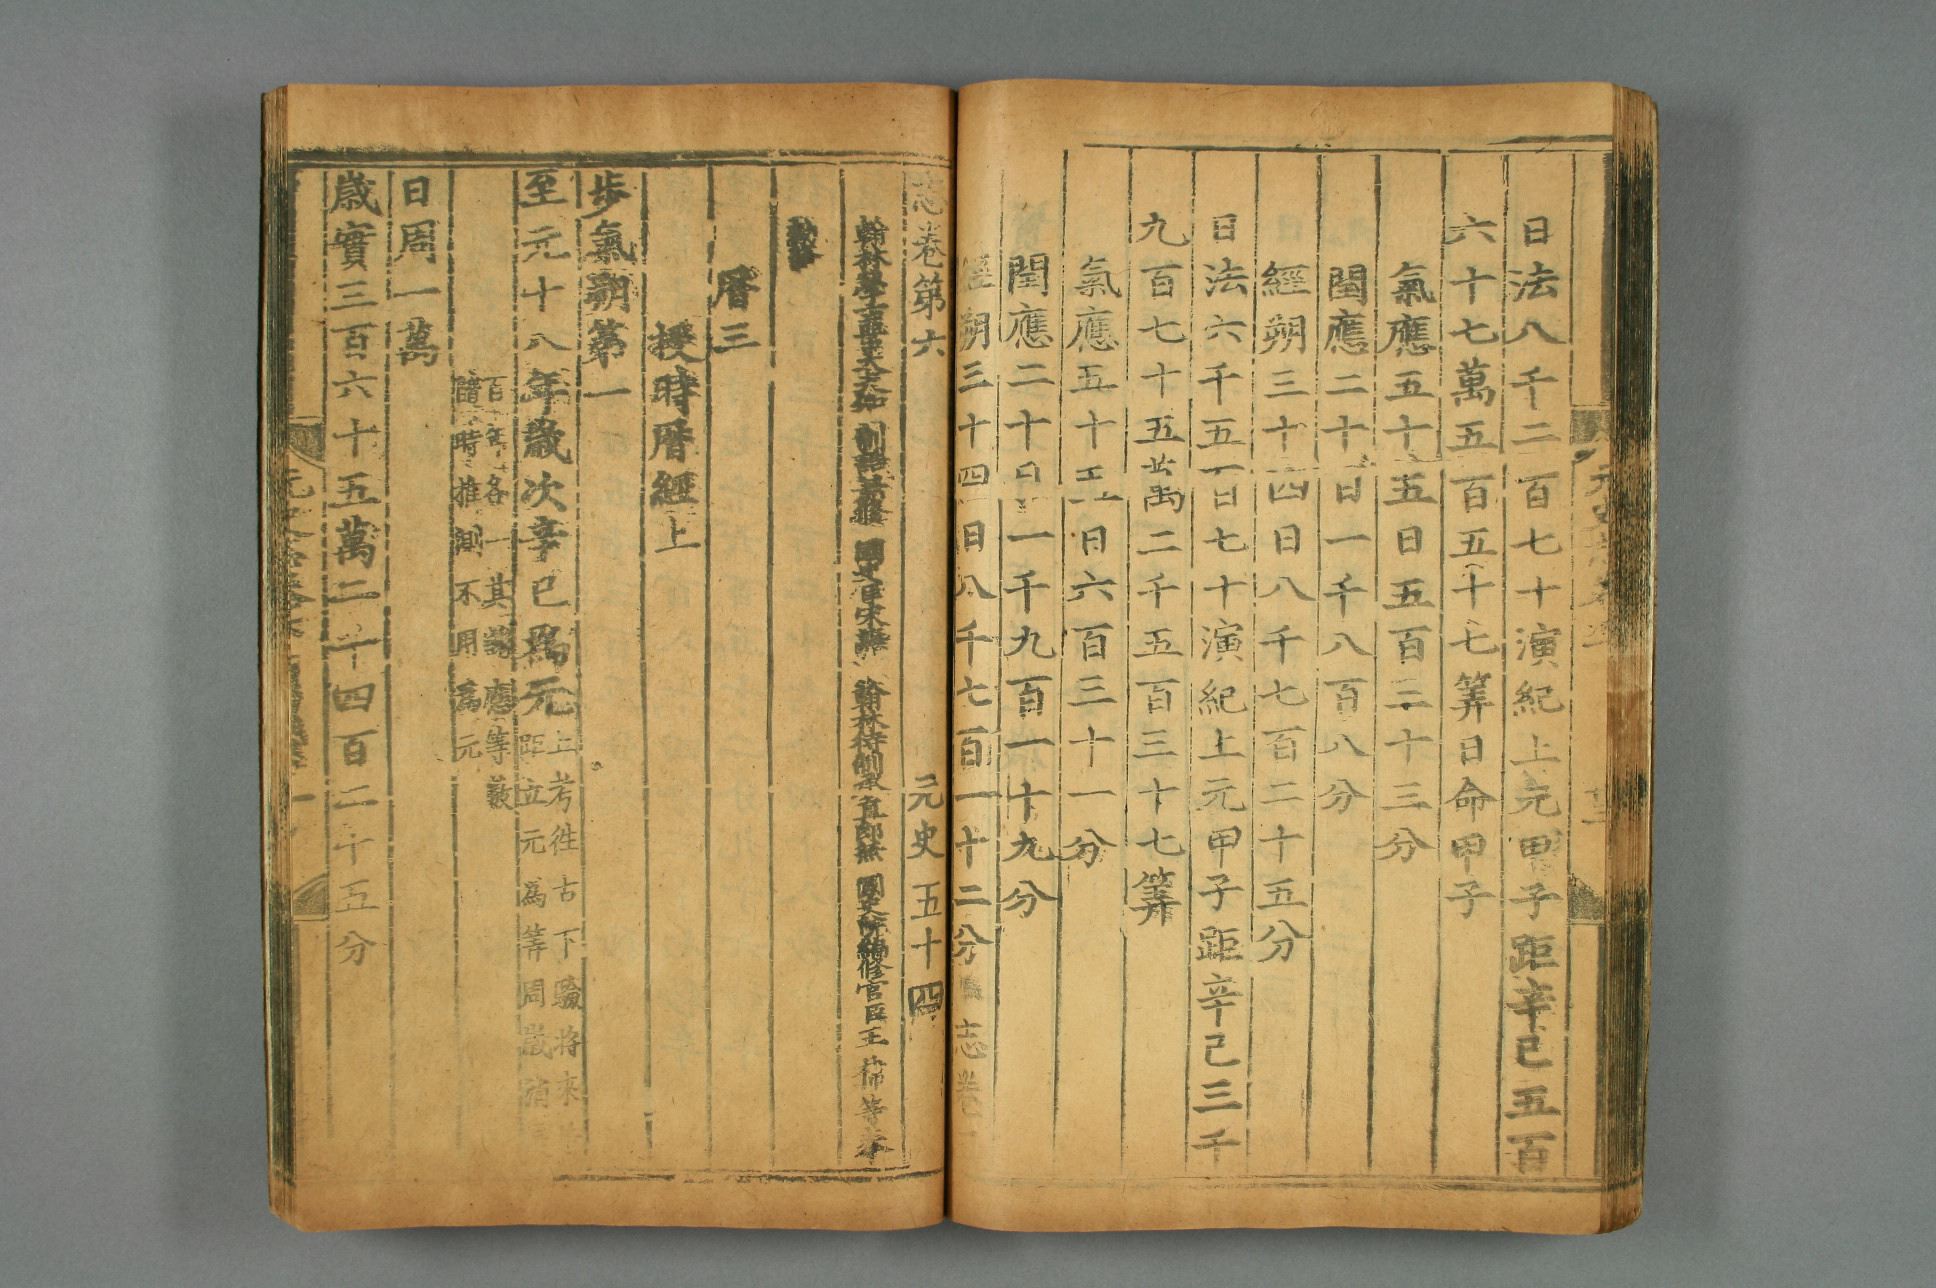 日法八千二百七十演紀上元甲子距辛巳五百
六十七萬五百五十七筭日命甲子
氣應五十五日五百三十三分
閏應二十日一千八百八分
經朔三十四日八千七百二十五分
日法六千五百七十演紀上元甲子距辛巳三千
九百七十五萬二千五百三十七筭
氣應五十五日六百三十一分
閏應二十日一千九百一十九分
經朔三十四日八千七百一十二分
志卷
志卷第六 元史五十四
翰林學士亞中大夫知 制誥兼修 國史臣宋濂 翰林待制承直郎兼 國史院編修官臣王禕等奉
敕修
曆三
授時曆經上
步氣朔第一
至元十八年歲次辛巳爲元上考往古下驗將來皆
距立元爲筭周歲消
百年各一其諸應等數
隨時推測不用爲元
日周一萬
歲實三百六十五萬二千四百二十五分